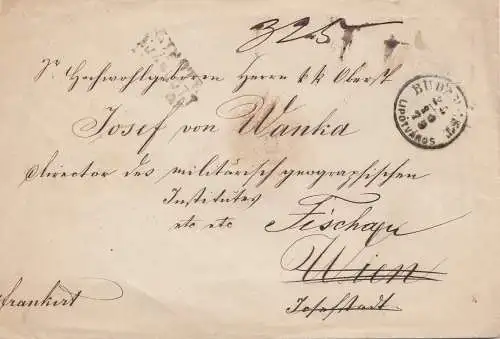 325
Sr Hochwohlgeboren Herrn k k Oberst
Josef von Wanka
Director des militärisch-geographischen
Institutes
etc etc
Fischau
Wien
Josefstadt
frankirt
BUDAPEST
LIPÓTVÁROS